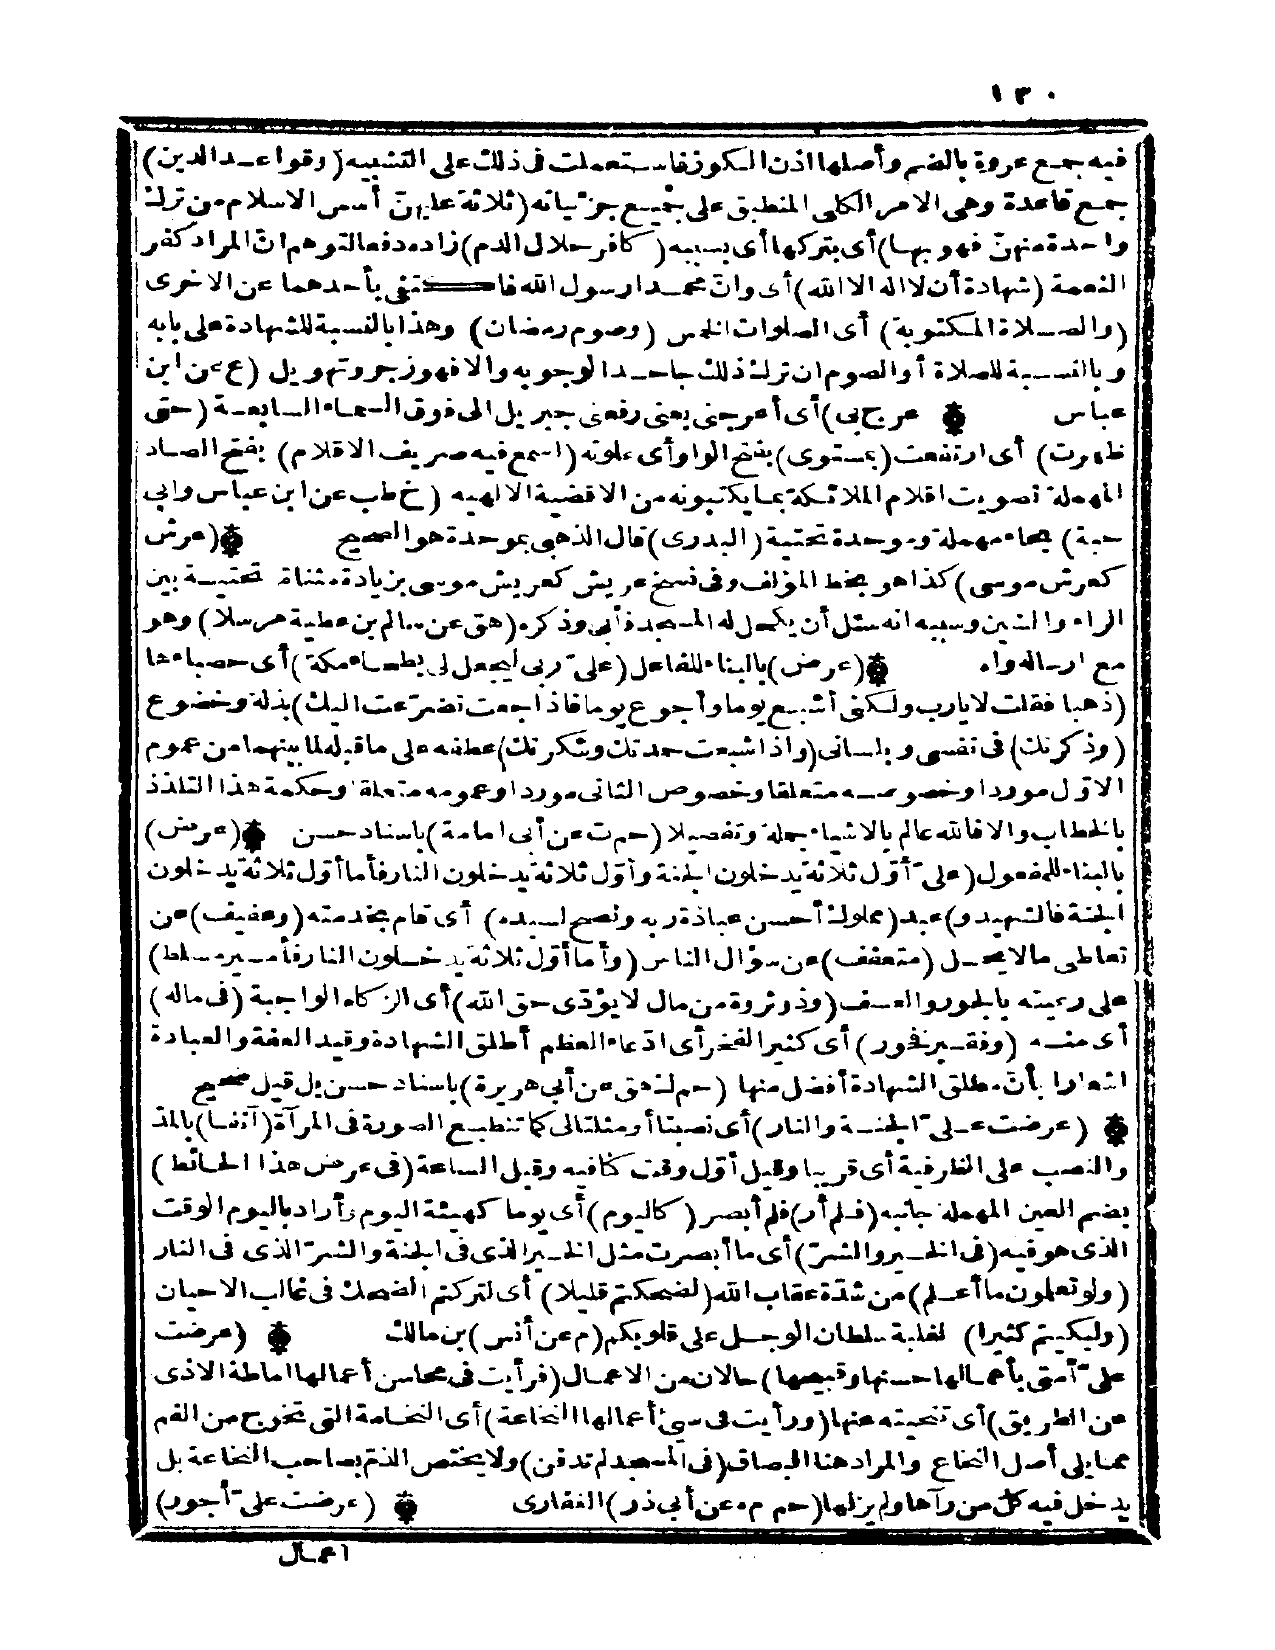 ١٣٠
فيه جمع عروة بالضم وأصلها اذن الكوز فاستعملت فى ذلك على التشبيه (وقواعد الدين)
جمع قاعدة وهى الامر الكلى المنطبق على جميع جزئياته (ثلاثة عليهنّ أسس الاسلام من ترك
واحدة منهنّ فهو بها) أى بتركها أى بسببه (كافر حلال الدم) زاده دفعا لتوهم انّ المراد كفر
النعمة (شهادة أن لا اله الا الله) أى وانّ محمدا رسول الله فاكتفى بأحدهما عن الاخرى
(والصلاة المكتوبة) أى الصلوات الخمس (وصوم رمضان) وهذا بالنسبة للشهادة على بابه
وبالنسبة للصلاة أو الصوم ان ترك ذلك جاحدا لوجوبه والا فهو زجر وتهويل (ع عن ابن
عباس ۞ عرج بى) أى أعرجنى يعنى رفعنى جبريل الى فوق السماء السابعة (حتى
ظهرت) أى ارتفعت (بمستوى) بفتح الواو أى علوته (اسمع فيه صريف الاقلام) بفتح الصاد
المهملة تصويت اقلام الملائكة بما يكتبونه من الاقضية الالهيه (خ طب عن ابن عباس وابى
حبة) بحاء مهملة وموحدة تحتية (البدرى) قال الذهبى بموحدة هو الصحيح ۞ (عرش
كعرش موسى) كذا هو بخط المؤلف وفى نسخ عريش كعريش موسى بزيادة مثناة تحتية بين
الراء والشين وسببه انه سئل أن يكحل له المسجد فأبى وذكره (هق عن سالم بن عطية مرسلا) وهو
مع ارساله واه ۞ (عرض) بالبناء للفاعل (علىّ ربى ليجعل لى بطحاء مكة) أى حصباءها
(ذهبا فقلت لا يارب ولكنى أشبع يوما وأجوع يوما فاذا جعت تضرّعت اليك) بذلة وخضوع
(وذكرتك) فى نفسى وبلسانى (واذا شبعت حمدتك وشكرتك) عطفه على ماقبله لما بينهما من عموم
الاوّل موردا وخصوصه متعلقا وخصوص الثانى موردا وعمومه متعلقا وحكمة هذا التلذذ
بالخطاب والا فالله عالم بالاشياء جملة وتفصيلا (حم ت عن أبى امامة) باسناد حسن ۞ (عرض)
بالبناء للمفعول (علىّ أوّل ثلاثة يدخلون الجنة وأوّل ثلاثة يدخلون النار فأما أوّل ثلاثة يدخلون
الجنة فالشهيد و) عبد (مملوك أحسن عبادة ربه ونصح لسيده) أى قام بخدمته (وعفيف) عن
تعاطى ما لا يحل (متعفف) عن سؤال الناس (وأما أوّل ثلاثة يدخلون النار فأمير مسلط)
على رعيته بالجور والعسف (وذو ثروة من مال لا يؤدّى حق الله) أى الزكاة الواجبة (فى ماله)
أى منه (وفقير فخور) أى كثير الفخر أى ادّعاء العظم أطلق الشهادة وقيد العفة والعبادة
اشعارا بأنّ مطلق الشهادة أفضل منها (حم ك هق عن أبى هريرة) باسناد حسن بل قيل صحيح
۞ (عرضت علىّ الجنة والنار) أى نصبتا أو مثلتا لى كما تنطبع الصورة فى المرآة (آنفا) بالمدّ
والنصب على الظرفية أى قريبا وقيل أوّل وقت كنا فيه وقيل الساعة (فى عرض هذا الحائط)
بضم العين المهملة جانبه (فلم أر) فلم أبصر (كاليوم) أى يوما كهيئة اليوم وأراد باليوم الوقت
الذى هو فيه (فى الخير والشرّ) أى ما أبصرت مثل الخير الذى فى الجنة والشرّ الذى فى النار
(ولو تعلمون ما أعلم) من شدّة عقاب الله (لضحكتم قليلا) أى لتركتم الضحك فى غالب الاحيان
(ولبكيتم كثيرا) لغلبة سلطان الوجل على قلوبكم (م عن أنس) بن مالك ۞ (عرضت
علىّ أمتى بأعمالها حسنها وقبيحها) حالان من الاعمال (فرأيت فى محاسن أعمالها اماطة الاذى
عن الطريق) أى تنحيته عنها (ورأيت فى سئ أعمالها النخاعة) أى النخامة التى تخرج من الفم
مما يلى أصل النخاع والمراد هنا البصاق (فى المسجد لم تدفن) ولا يختص الذم بصاحب النخاعة بل
يدخل فيه كل من رآها ولم يزلها (حم م ه عن أبى ذر) الغفارى ۞ (عرضت علىّ أجور)
اعمال